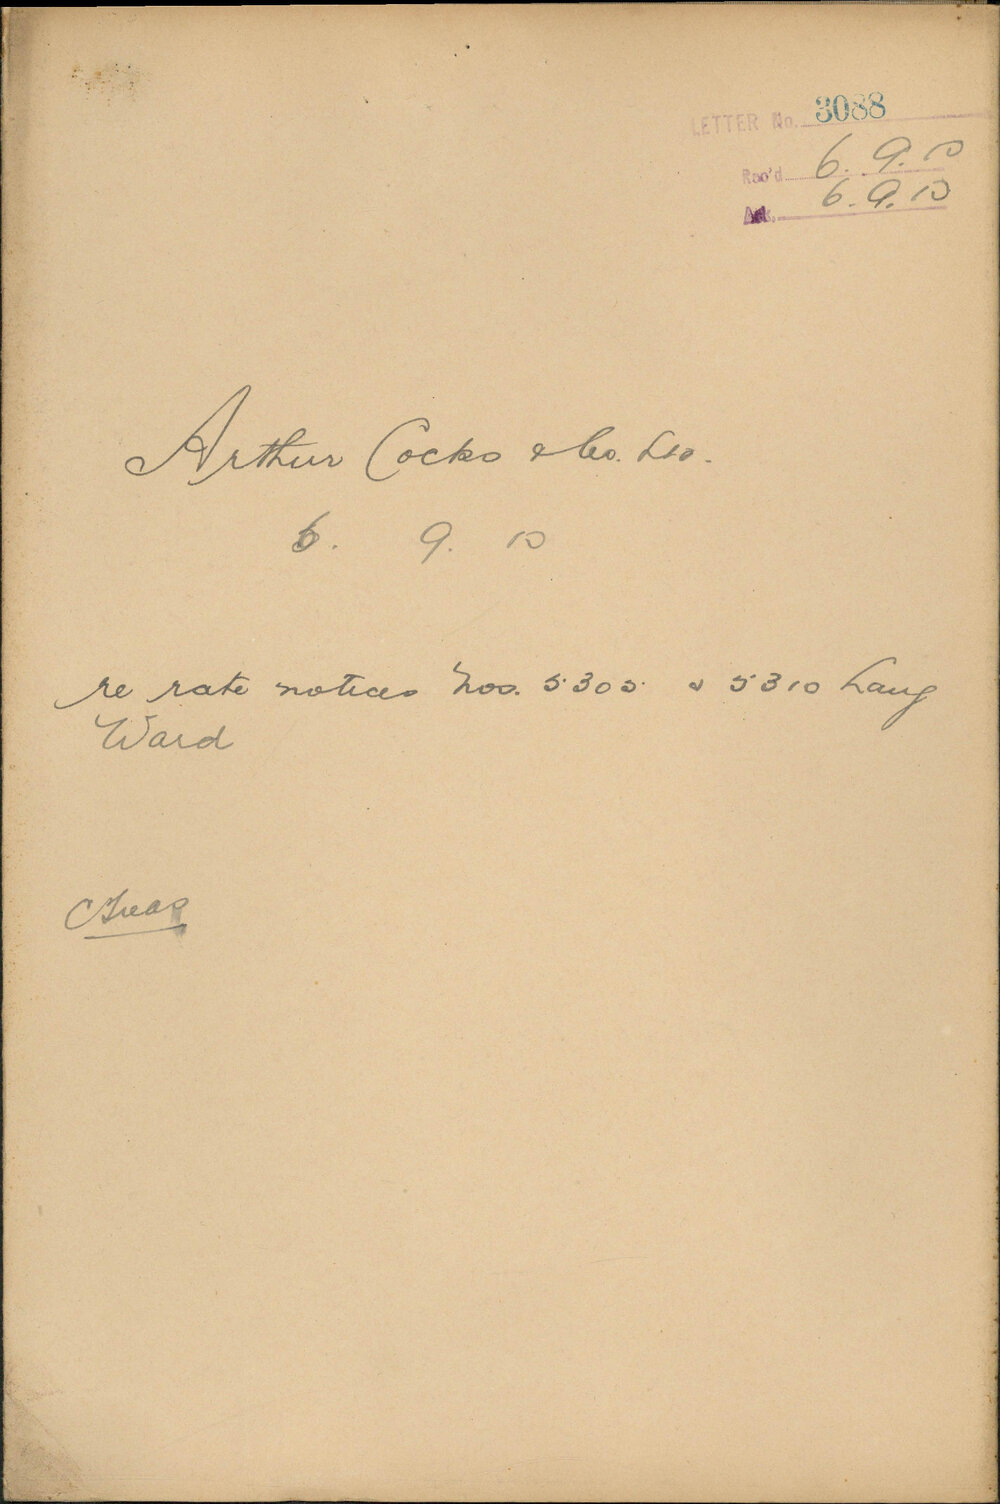 LETTER No. 3088
Rec'd 6. 9. 10
Ack. 6. 9. 10
Arthur Cocks & Co. Ltd.
6. 9. 10
re rate notices Nos. 5305 & 5310 Lang
Ward